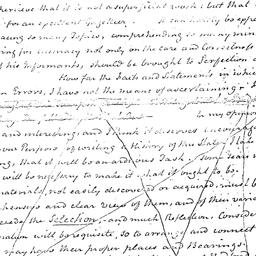 perceive that it is not a superficial work; but that
for an excellent Gazetteer. It can hardly be
acing so many Topics, comprehending so many min
ring for accuracy not only on the care and correctness
f his Informants, should be brought to Perfection a
How far the Facts and Statements in which
in Errors, I have not the means of ascertaining.
In my opinion
and interesting; and I think it deserves Encourage
your Purpose of writing a History of the State
ng, that it will be an arduous Task. Some Years
will be necessary to make it what it ought to be.
materials, not easily discovered or acquired, must b
hensive and clear view of them, and of their vari
cede the Selection, and much Reflection. Conside
nation will be requisite, so to arrange and connect
may have their proper places and Bearings.